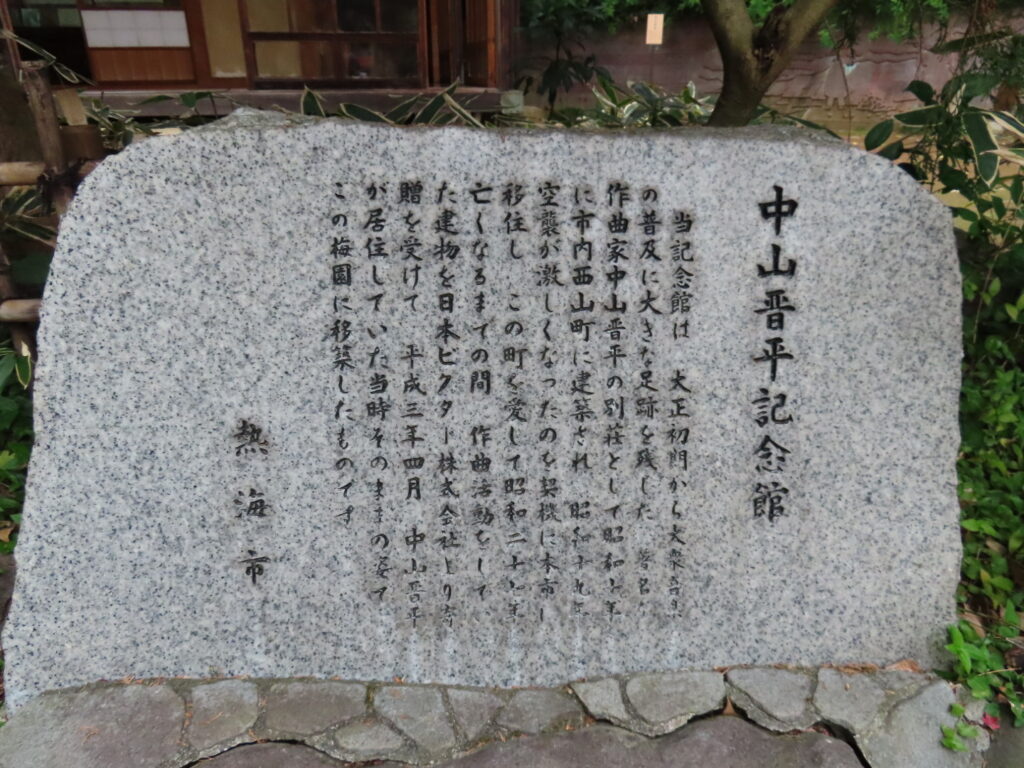 中山晋平記念館
当記念館は 大正初門から大衆音楽
の普及に大きな足跡を残した 著名な
作曲家中山晋平の別荘として昭和十年
に市内西山町に建築され 昭和十九年
空襲が激しくなったのを契機に本市に
移住し この町を愛して昭和二十七年
亡くなるまでの間 作曲活動をして
た建物を日本ビクター株式会社より寄
贈を受けて 平成三年四月 中山晋平
が居住していた当時そのままの姿で
この梅園に移築したものです
熱海市